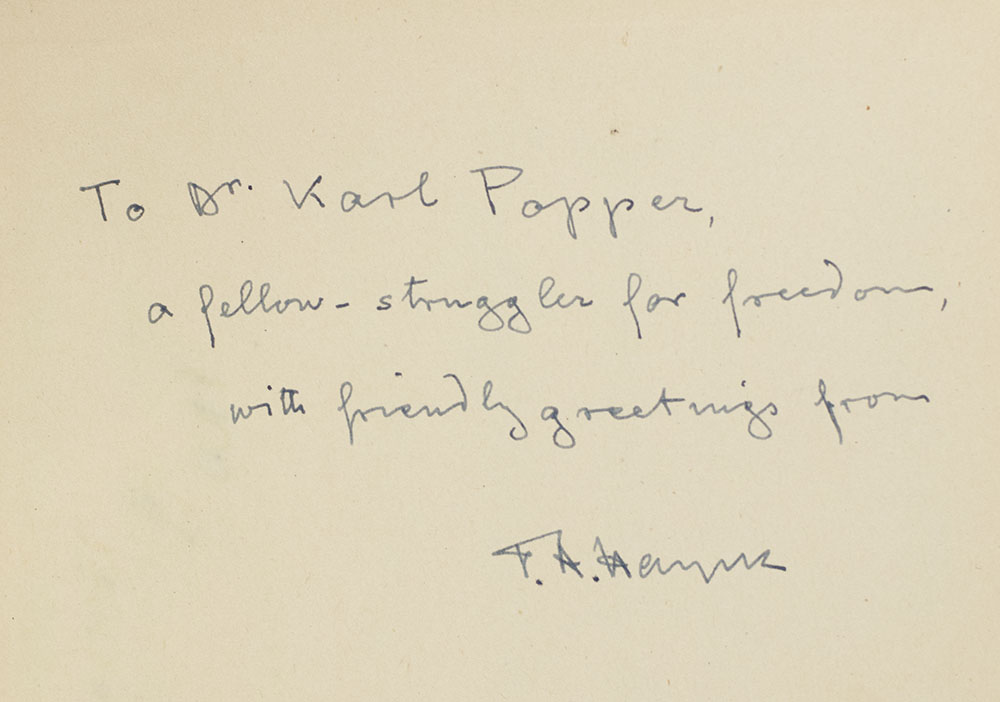 To Dr. Karl Popper,
a fellow-struggler for freedom,
with friendly greetings from
F. A. Hayek